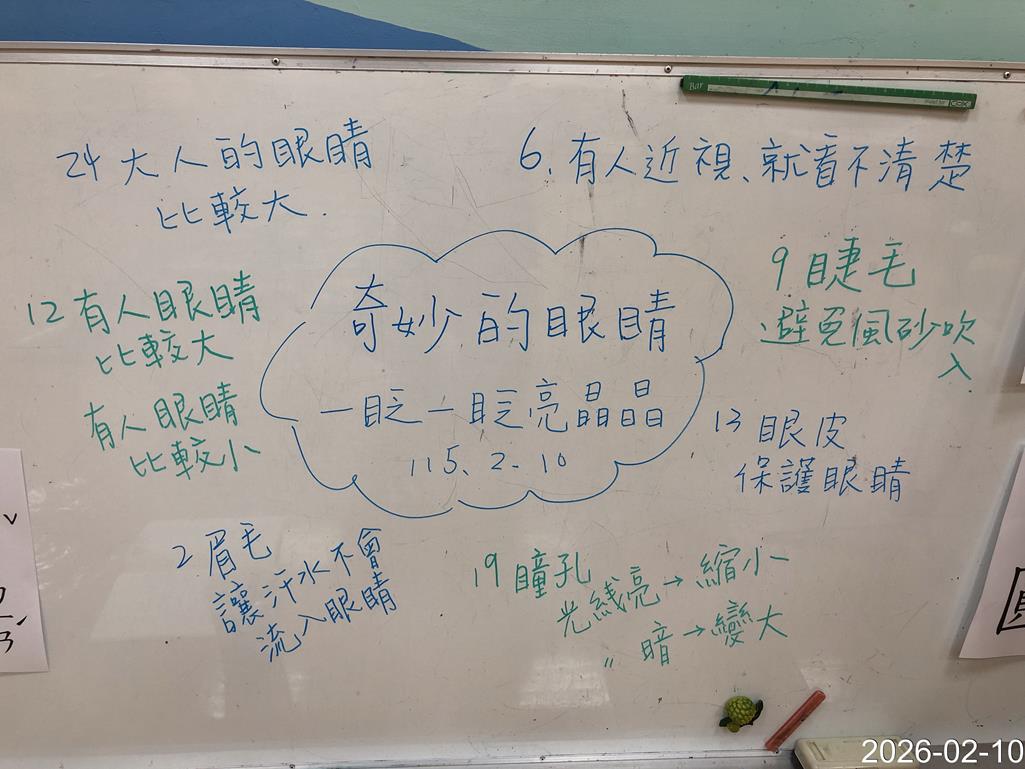 24 大人的眼睛
比較大.
6. 有人近視、就看不清楚
12 有人眼睛
比較大
有人眼睛
比較小
奇妙的眼睛
一眨一眨亮晶晶
115. 2. 10
9 睫毛
避免風砂吹
入
13 眼皮
保護眼睛
2 眉毛
讓汗水不會
流入眼睛
19 瞳孔
光線亮→縮小
〃 暗→變大
2026-02-10